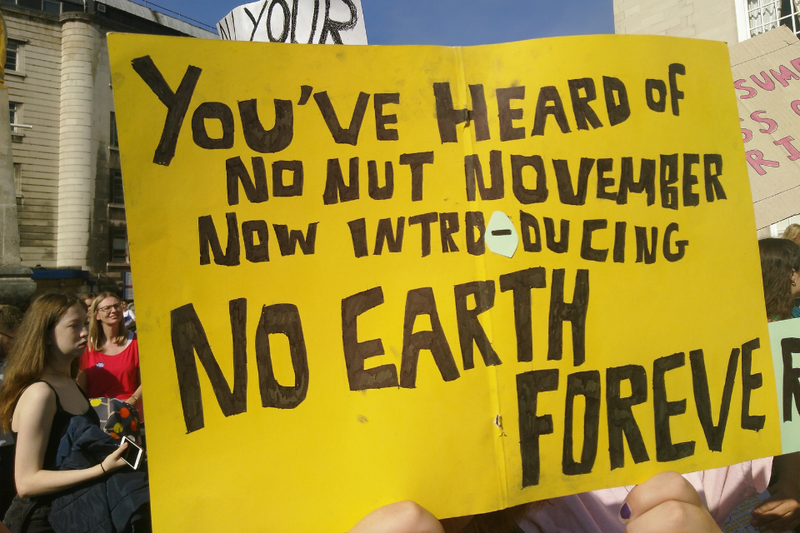 YOUR
YOU'VE HEARD OF
NO NUT NOVEMBER
NOW INTRO-DUCING
NO EARTH
FOREVE
SUM
SS
RI
R